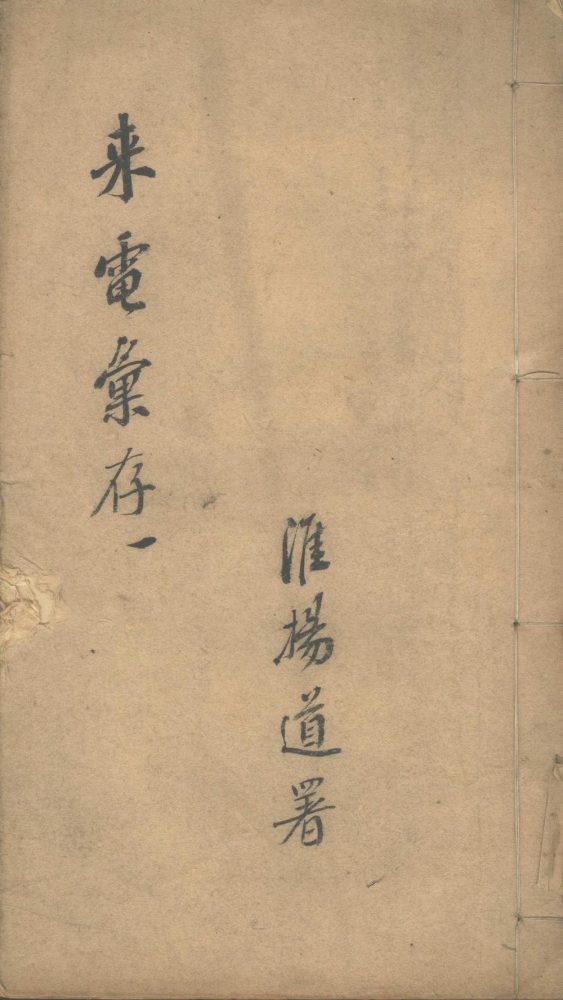 来電彙存一
淮揚道署